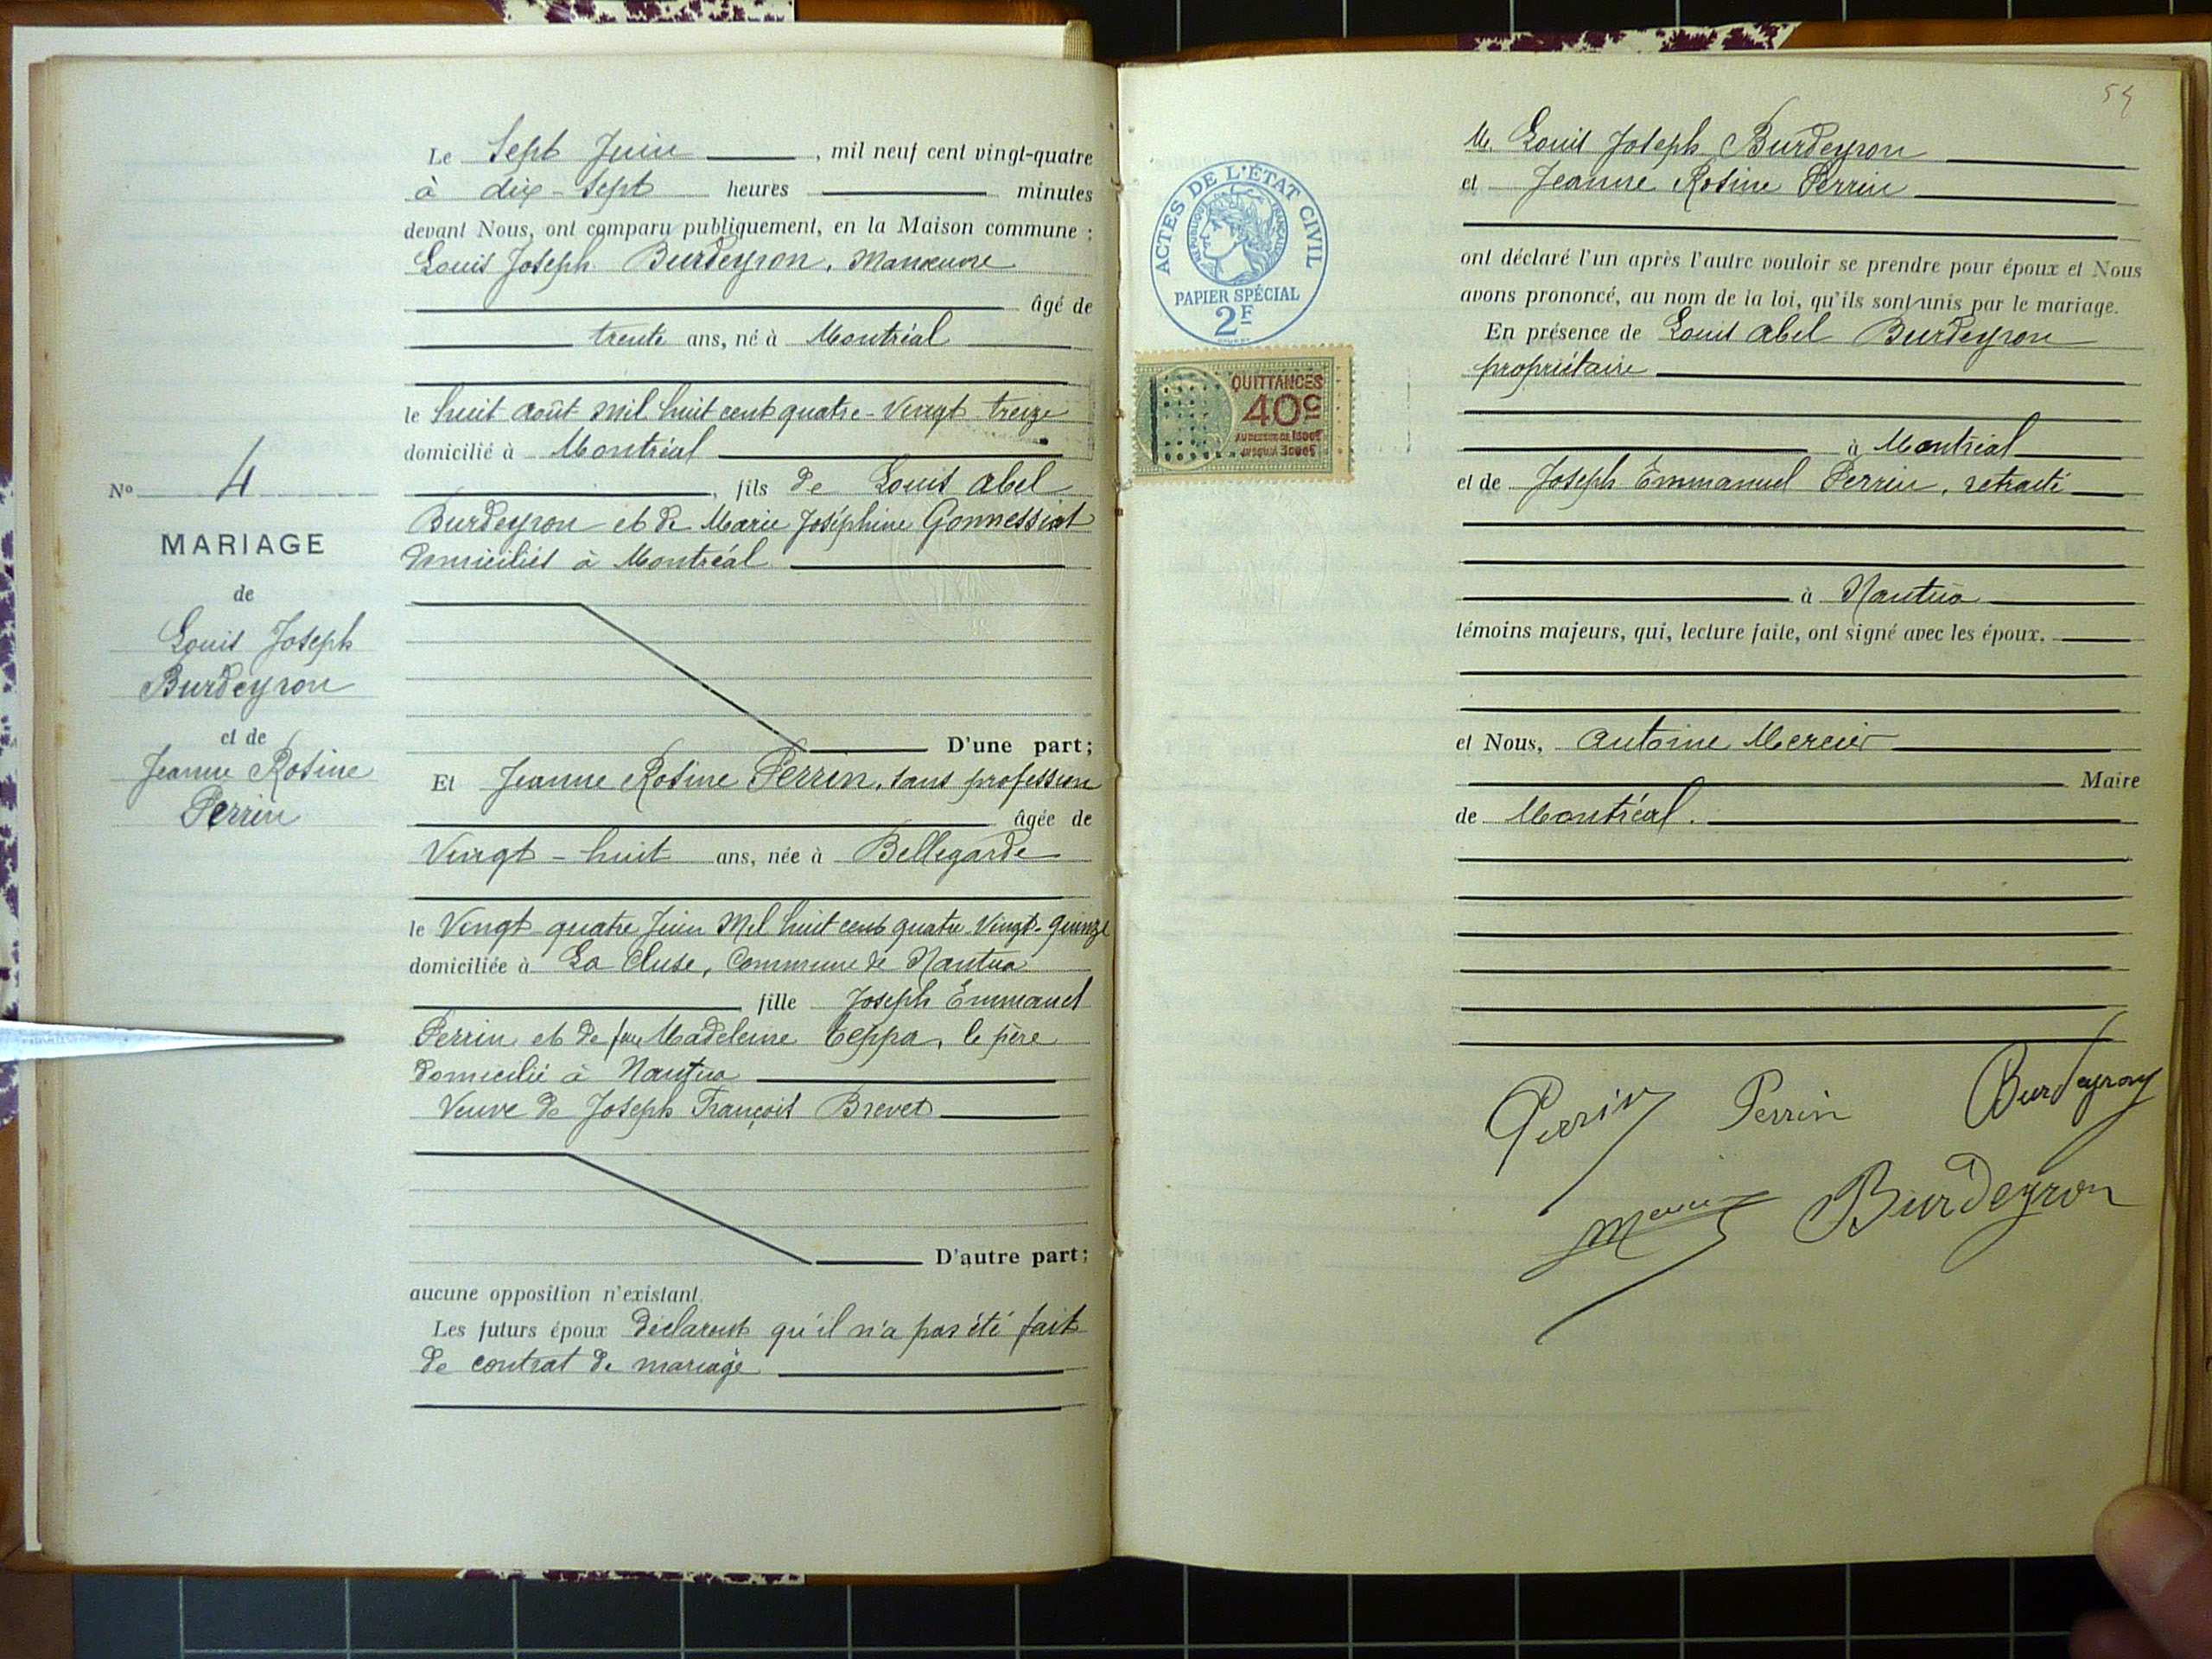 Le Sept Juin, mil neuf cent vingt-quatre
à dix-sept heures minutes
devant Nous, ont comparu publiquement, en la Maison commune :
Louis Joseph Burdeyron, Manœuvre
âgé de
trente ans, né à Montréal
le huit août mil huit cent quatre-vingt treize
domicilié à Montréal
, fils de Louis Abel
Burdeyron et de Marie Joséphine Gonnessiat
domiciliés à Montréal
D'une part;
Et Jeanne Rosine Perrin, sans profession
âgée de
Vingt-huit ans, née à Bellegarde
le Vingt quatre Juin Mil huit cent quatre Vingt-quinze
domiciliée à La Cluse, Commune de Nantua
fille Joseph Emmanuel
Perrin et de feue Madeleine Ceppa, le père
domicilié à Nantua
Veuve de Joseph François Brevet
D'autre part;
aucune opposition n'existant.
Les futurs époux déclarent qu'il n'a pas été fait
de contrat de mariage
No 4
MARIAGE
de
Louis Joseph
Burdeyron
et de
Jeanne Rosine
Perrin
ACTES DE L'ÉTAT CIVIL
RÉPUBLIQUE FRANÇAISE
PAPIER SPÉCIAL
2F
QUITTANCES
40c
54
M. Louis Joseph Burdeyron
et Jeanne Rosine Perrin
ont déclaré l'un après l'autre vouloir se prendre pour époux et Nous
avons prononcé, au nom de la loi, qu'ils sont unis par le mariage.
En présence de Louis Abel Burdeyron
propriétaire
à Montréal
et de Joseph Emmanuel Perrin, retraité
à Nantua
témoins majeurs, qui, lecture faite, ont signé avec les époux.
et Nous, Antoine Mercier
Maire
de Montréal.
Perrin Perrin Burdeyron
Mercier Burdeyron